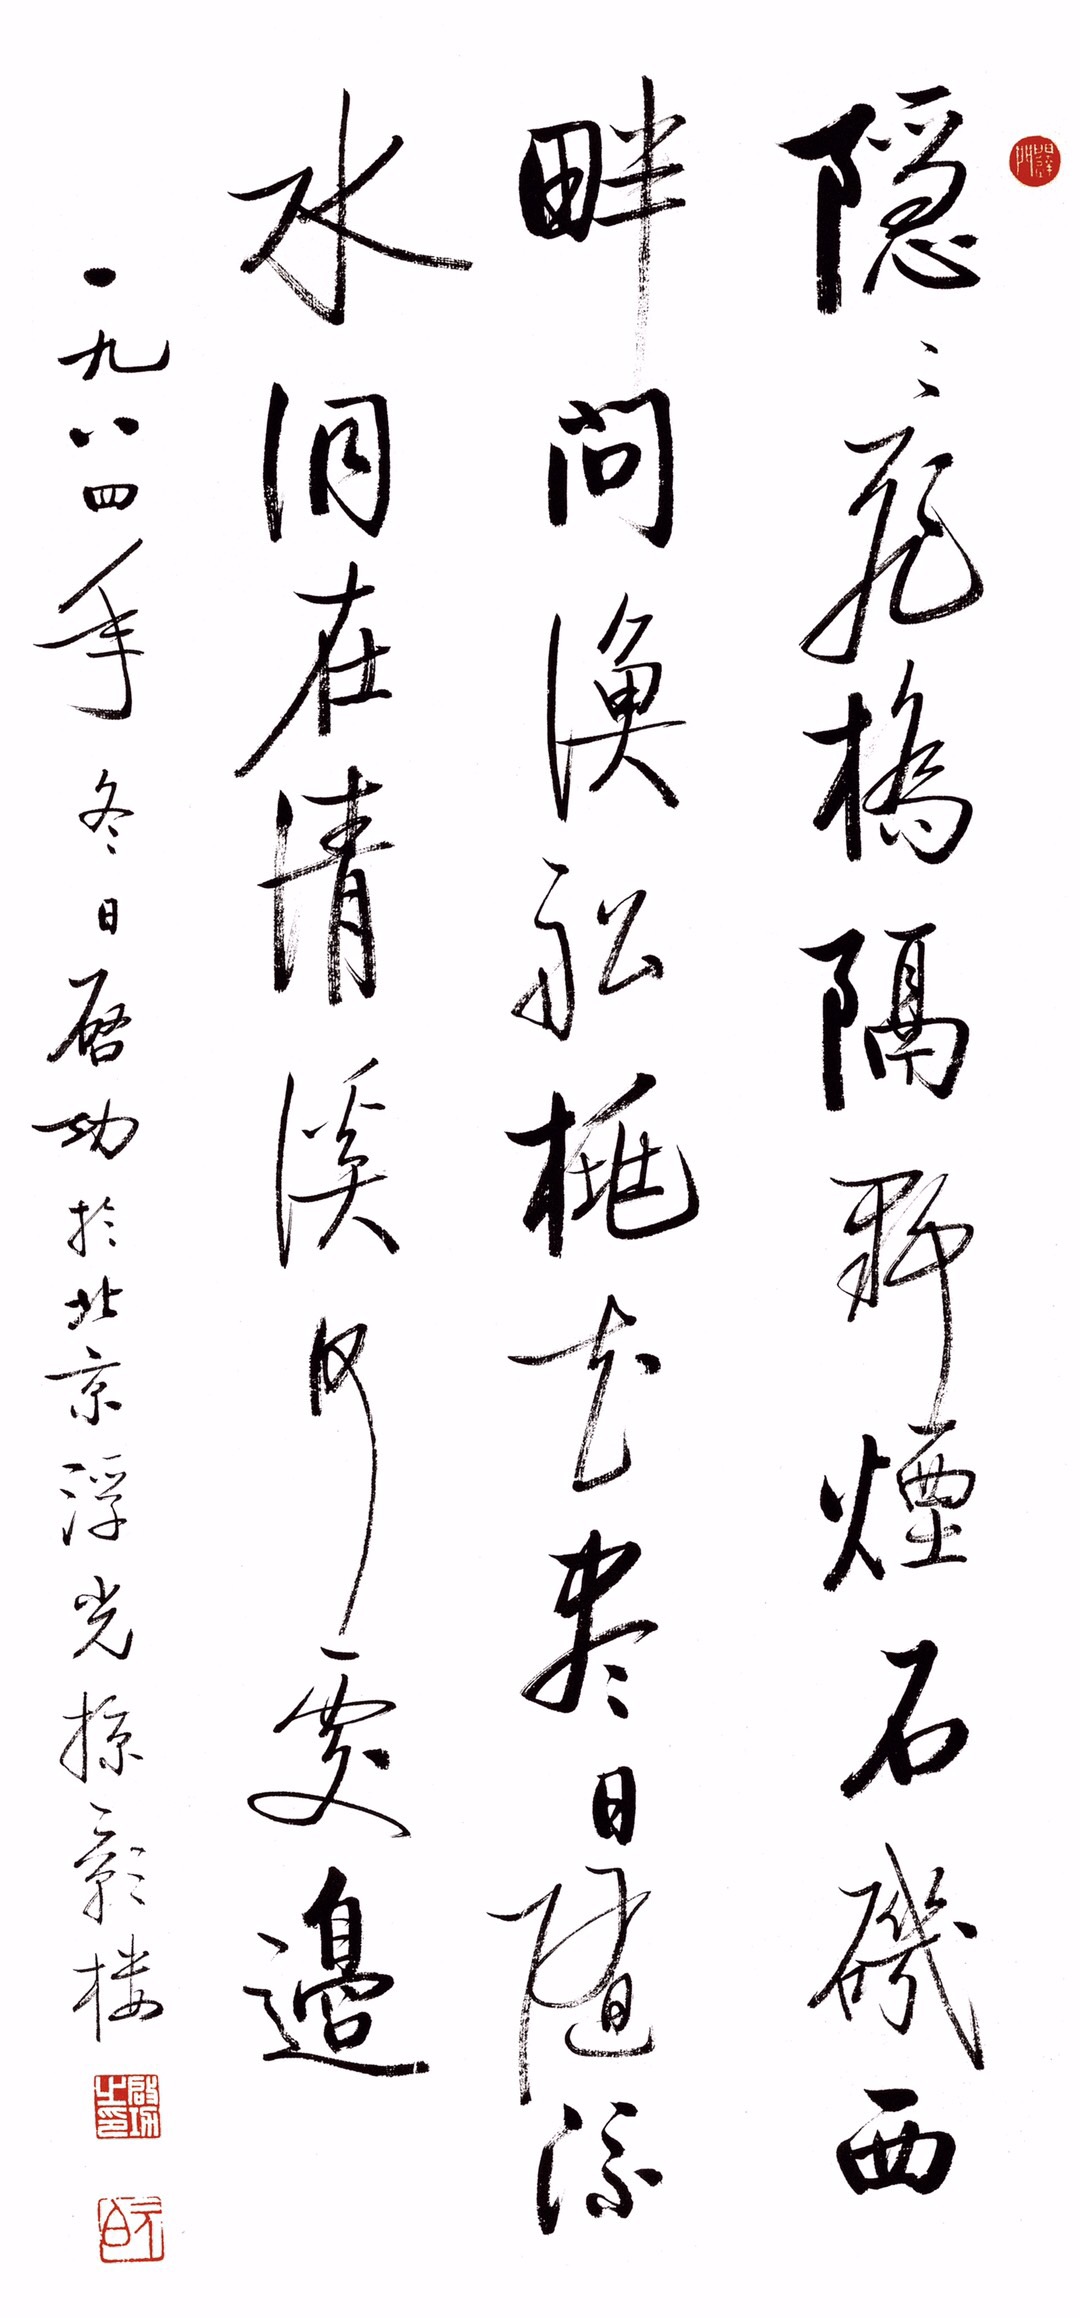 隐〻飛橋隔野煙石磯西
畔問漁舩桃花盡日随流
水洞在清溪何處邊
一九八四年冬日启功於北京浮光掠影楼
啟功之印
元白